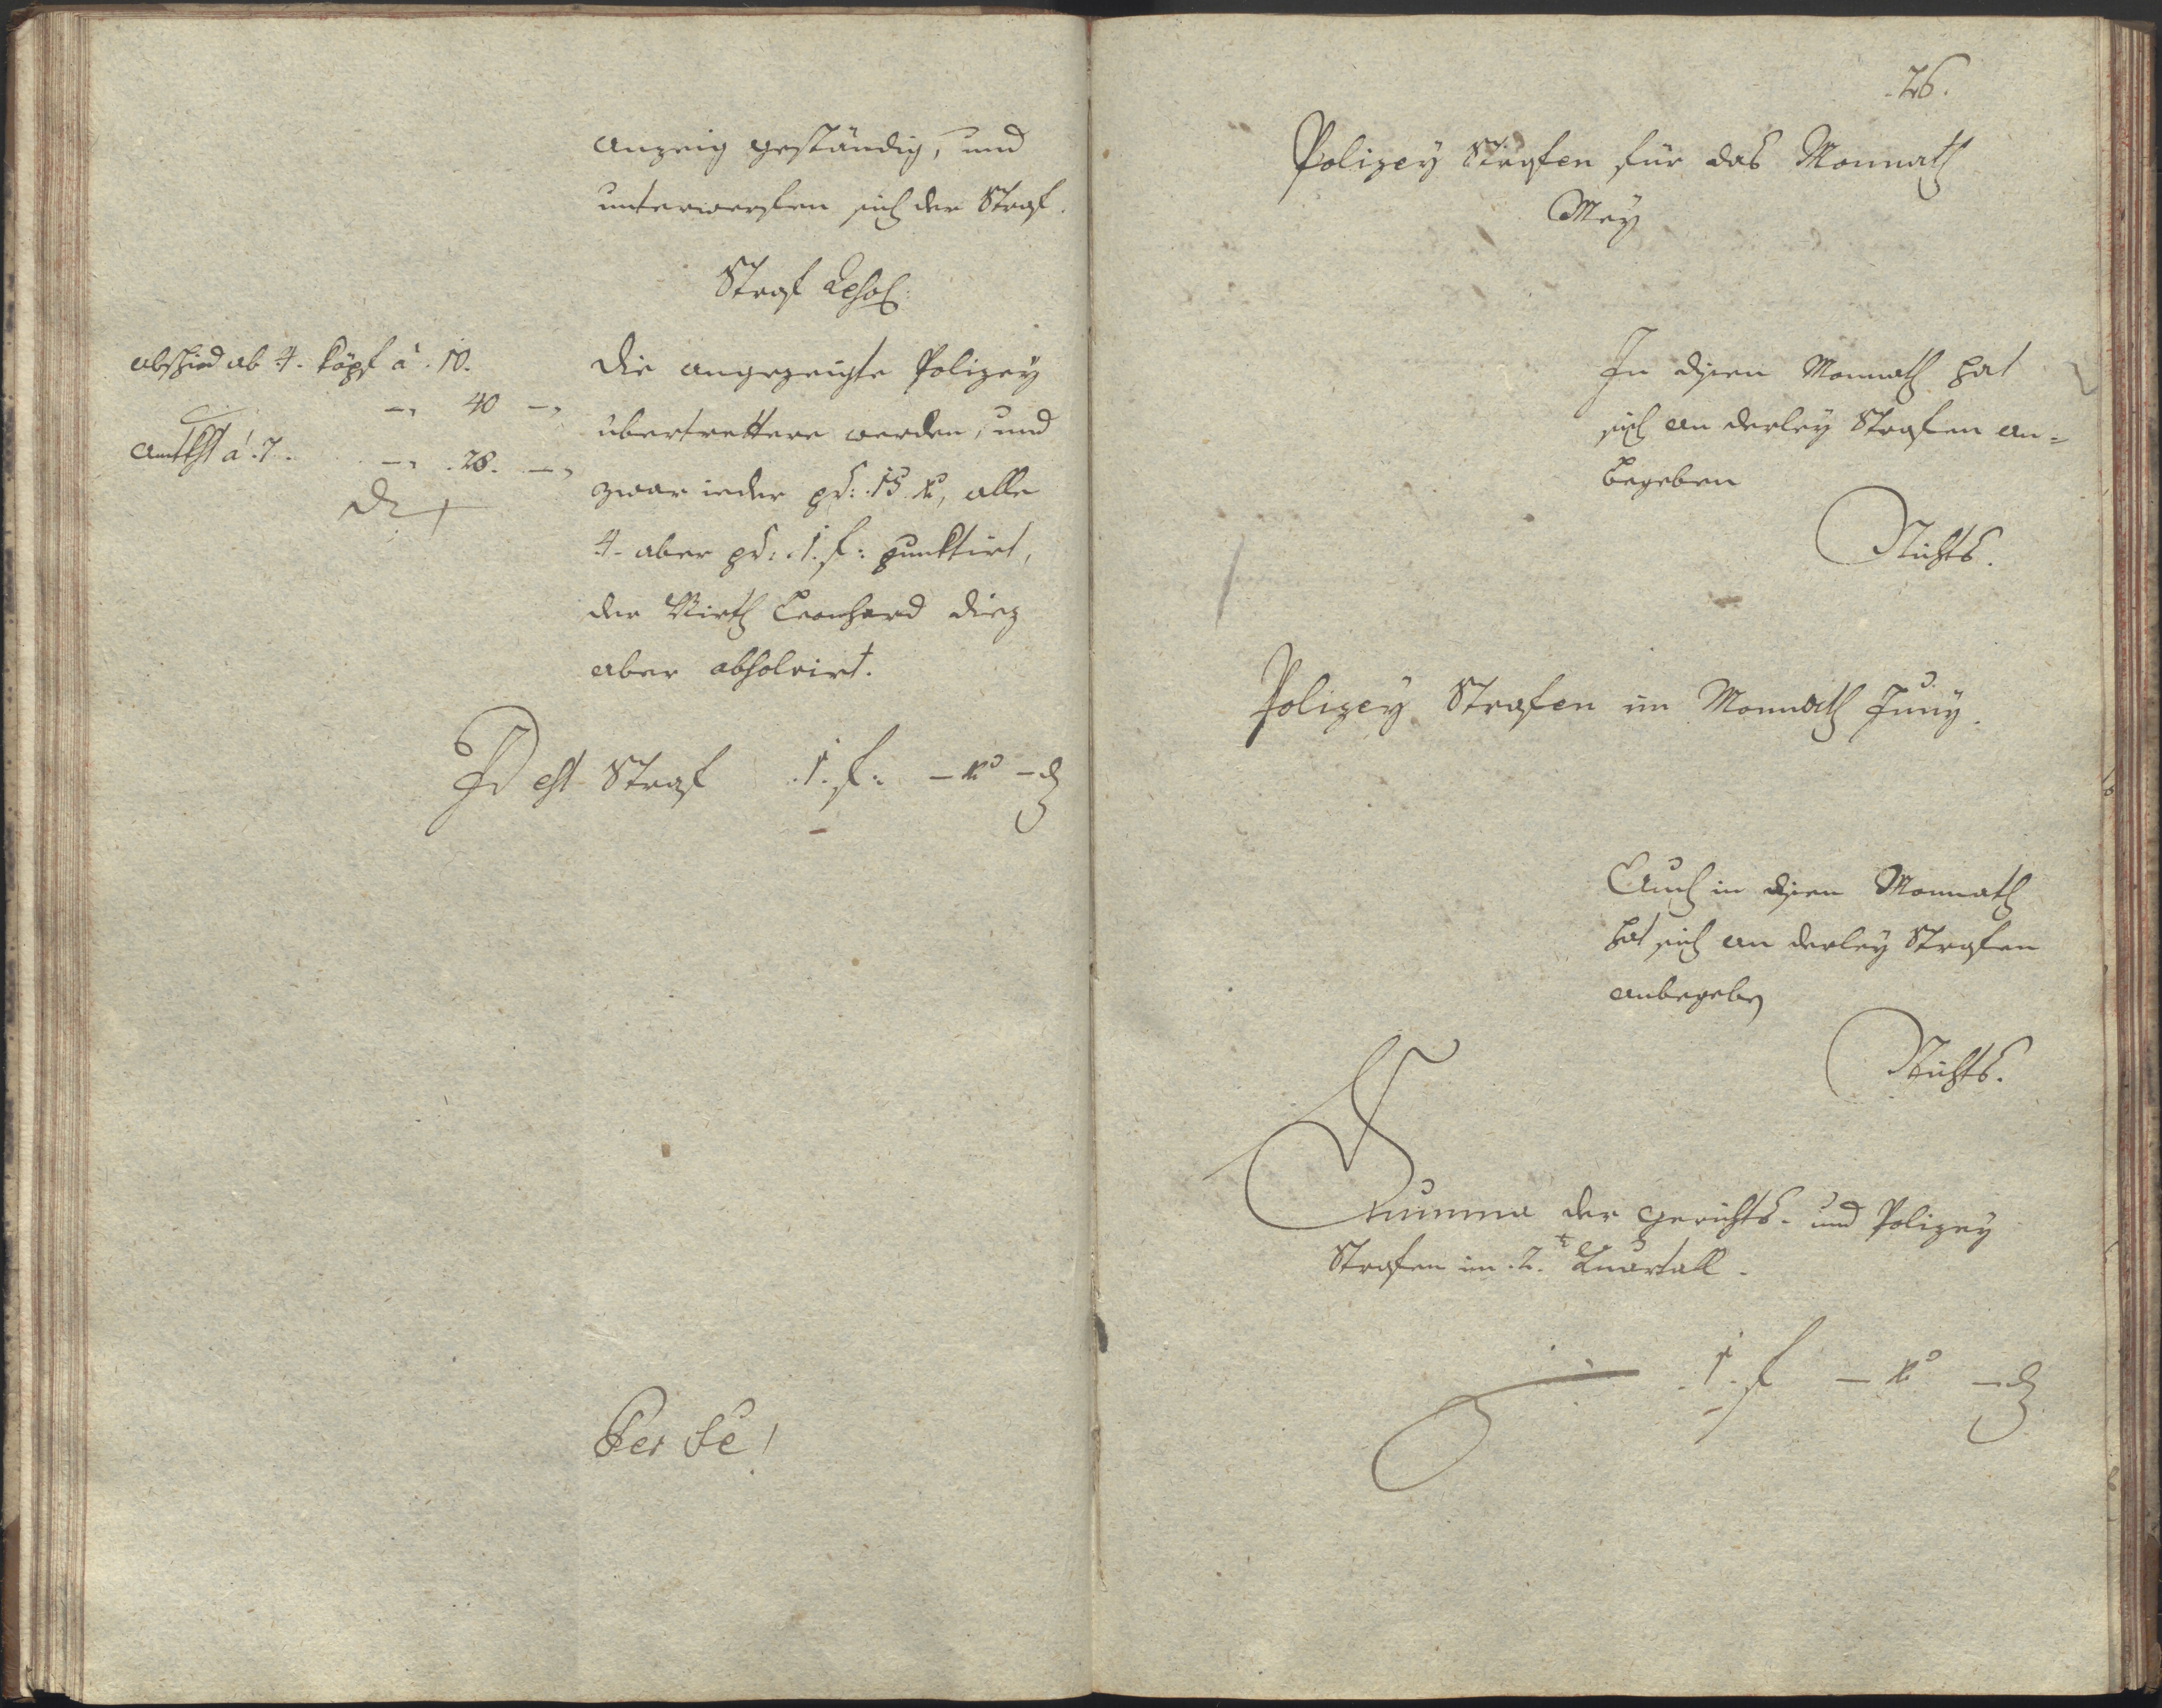 anzeig geständig, und
unterwerffen sich der Straf.
Straf Resol:
abschid ab 4. köpf à 10.
40
Amtkst à 7.
28.
Die angezeigte Polizey
übertrettere werden, und
zwar ieder pr: 15 xr, alle
4. aber pr: 1. f: punktirt,
der Wirth Leonhard Diez
aber absolvirt.
Id est Straf 1. f: – xr – d
Per se!
26.
Polizey Strafen für das Monnath
Mey
In disen Monnath hat
sich an derley Strafen an=
begeben
Nichts.
Polizey Strafen im Monnath Juny.
Auch in disen Monnath
hat sich an derley Strafen
anbegeben
Nichts.
Summa der Gerichts- und Polizey
Strafen im 2.t Quartall.
1. f – xr – d